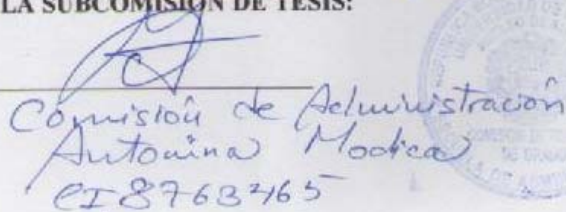 LA SUBCOMISIÓN DE TESIS:
Comisión de Administración
Antonina Modica
CI 8763465